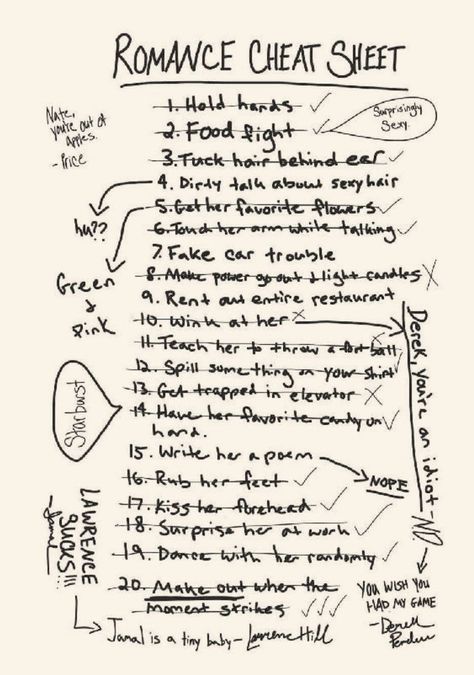 ROMANCE CHEAT SHEET
1. Hold hands ✓
2. Food fight ✓
Surprisingly
Sexy.
Nate,
you're out of
apples.
- Price
3. Tuck hair behind ear ✓
4. Dirty talk about sexy hair
hu??
5. Get her favorite flowers ✓
Green
+
Pink
6. Touch her arm while talking ✓
7. Fake car trouble
8. Make power go out + light candles X
9. Rent out entire restaurant
10. Wink at her X
Derek, you're an idiot
11. Teach her to throw a football X
12. Spill something on your shirt ✓
13. Get trapped in elevator X
14. Have her favorite candy on ✓
hand.
Starburst
15. Write her a poem
NOPE
16. Rub her feet ✓
17. Kiss her forehead ✓
18. Surprise her at work ✓
19. Dance with her randomly ✓
20. Make out when the
moment strikes ✓✓✓
NO
YOU WISH YOU
HAD MY GAME
LAWRENCE
SUCKS!!!
- Jamal
Jamal is a tiny baby - Lawrence Hill